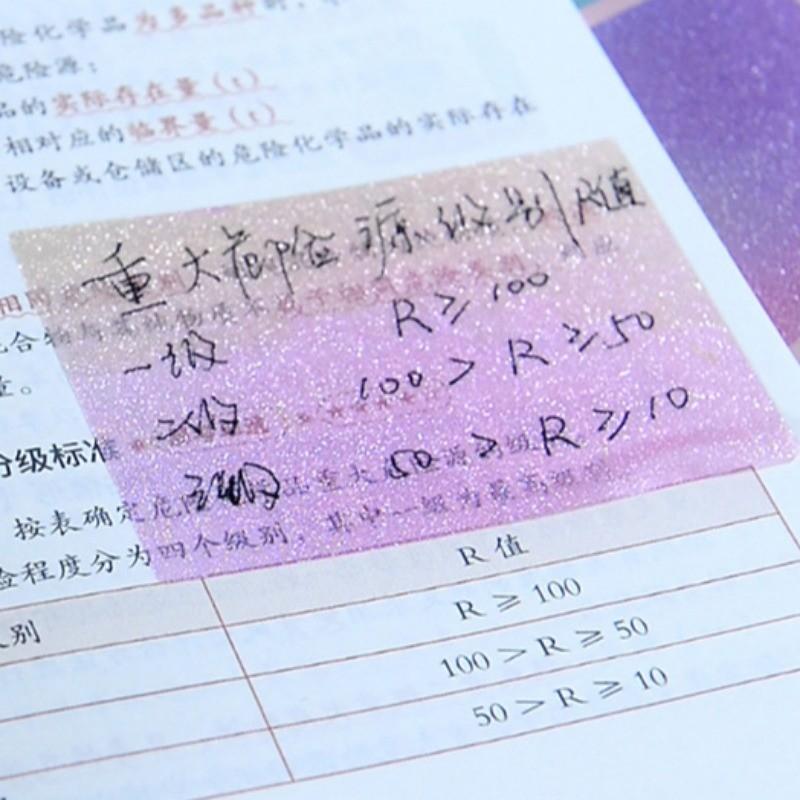 险化学品为多品种时，
危险源：
品的实际存在量（t）
相对应的临界量（t）
设备或仓储区的危险化学品的实际存在
重大危险源级别 R值
一级 R≥100
二级 100 > R ≥50
三级 50 > R ≥10
量。
分级标准
按表确定危险 品重大 险源的级别
险程度分为四个级别，其中一级为最高级别
级别 R 值
R ≥ 100
100 > R ≥ 50
50 > R ≥ 10